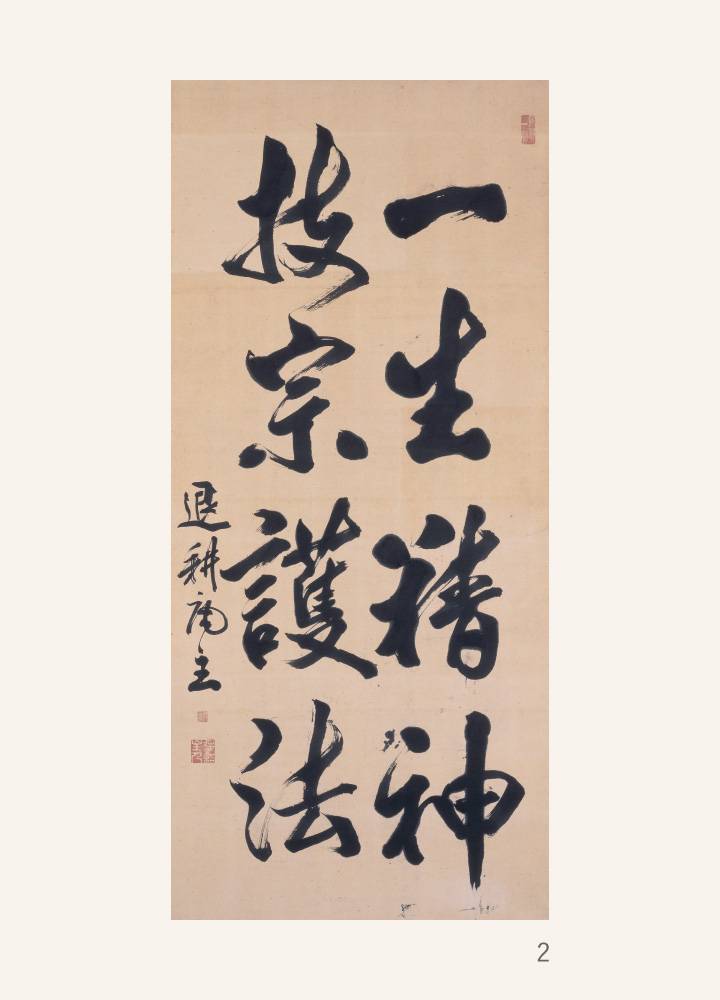 一生精神
扶宗護法
退耕庵主
2